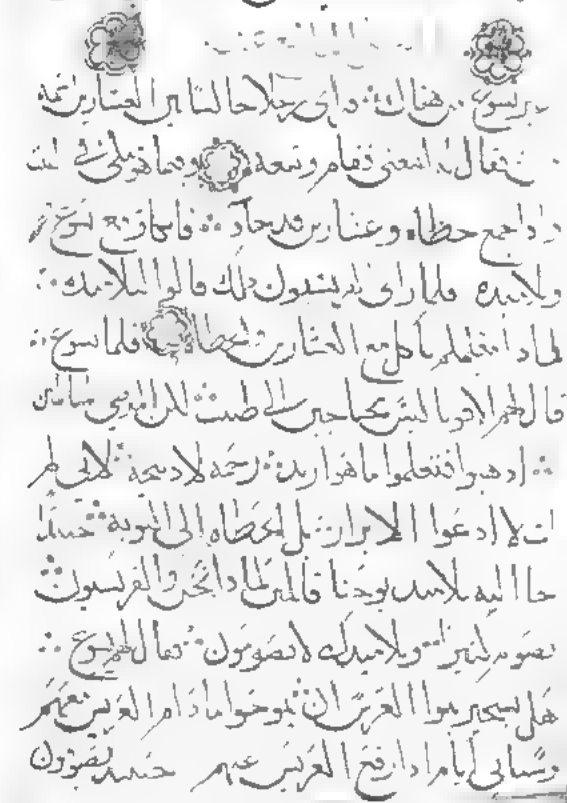 يسوع من هناك وراى رجلا جالسا بين العشارين اسمه
فقال له اتبعنى فقام وتبعه وفيما هو متكى فى بيت
واذا جمع خطاه وعشارين قد جاو فاتكاو مع يسوع
وتلاميذه فلما راى الفريسيون ذلك قالوا لتلاميذه
لماذا معلمكم ياكل مع العشارين والخطاه فلما سمع يسوع
قال لهم الاقويا ليس محتاجين الى طبيب لكن المرضى
اذهبوا فتعلموا ما هو اريد رحمة لا ذبيحة لانى لم
ات لادعوا الابرار بل الخطاه الى التوبة حينيذ
جاا اليه تلاميذ يوحنا قايلين لماذا نحن والفريسيون
نصوم كثيرا وتلاميذك لا يصومون فقال لهم يسوع
هل يستطيع بنوا العرس ان ينوحوا ما دام العريس معهم
وستاتى ايام اذا رفع العريس عنهم حينيذ يصومون